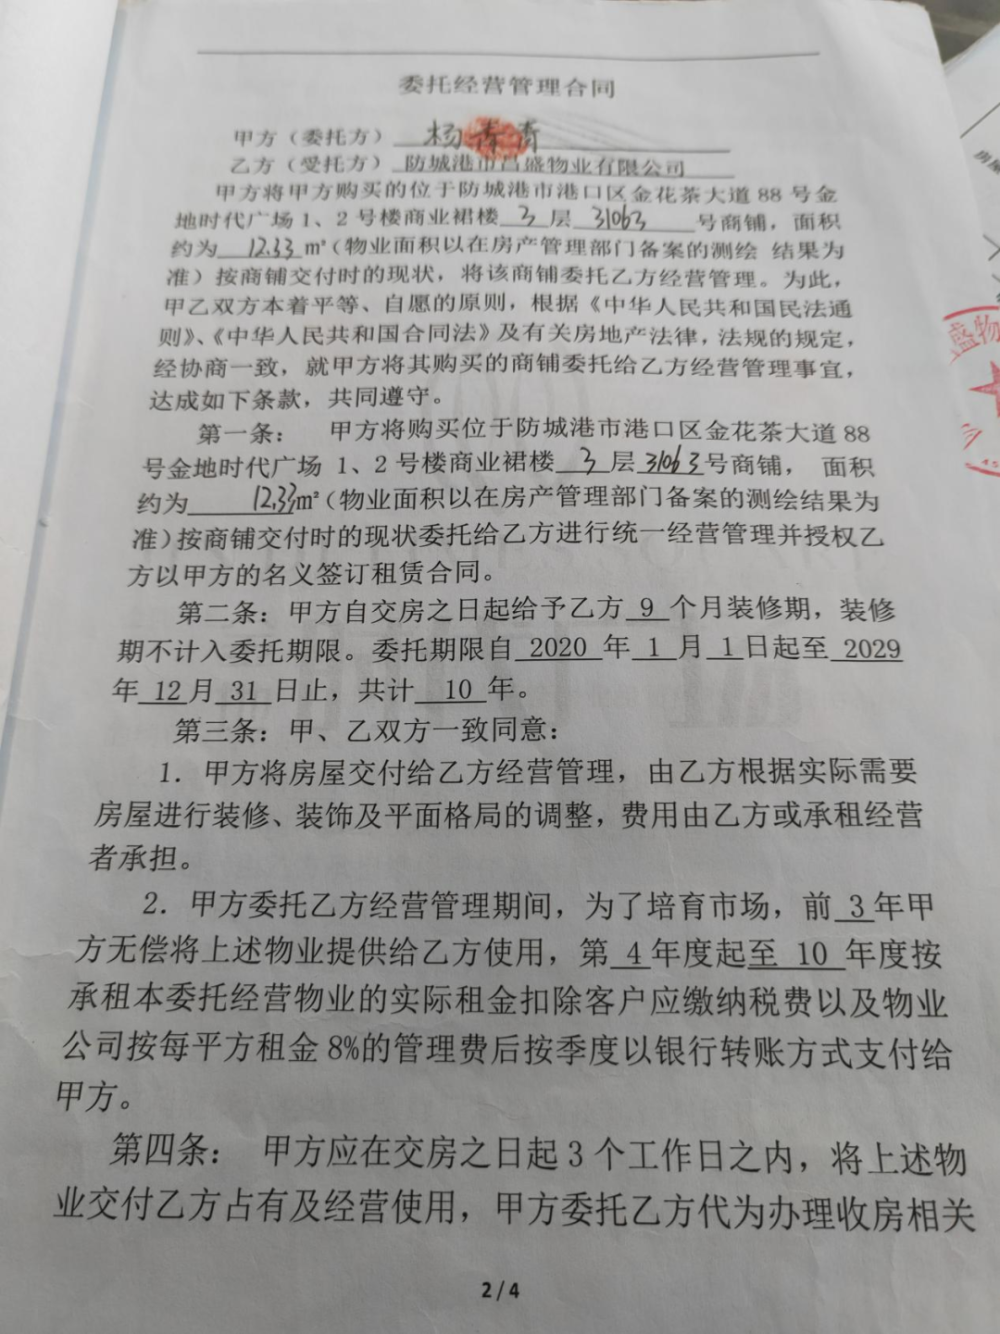 委托经营管理合同
甲方（委托方） 杨青青
乙方（受托方） 防城港市昌盛物业有限公司
甲方将甲方购买的位于防城港市港口区金花茶大道 88 号金
地时代广场 1、2 号楼商业裙楼 3 层 31063 号商铺，面积
约为 12.33 m²（物业面积以在房产管理部门备案的测绘 结果为
准）按商铺交付时的现状，将该商铺委托乙方经营管理。为此，
甲乙双方本着平等、自愿的原则，根据《中华人民共和国民法通
则》、《中华人民共和国合同法》及有关房地产法律，法规的规定，
经协商一致，就甲方将其购买的商铺委托给乙方经营管理事宜，
达成如下条款，共同遵守。
第一条： 甲方将购买位于防城港市港口区金花茶大道 88
号金地时代广场 1、2 号楼商业裙楼 3 层 31063 号商铺， 面积
约为 12.33 m²（物业面积以在房产管理部门备案的测绘结果为
准）按商铺交付时的现状委托给乙方进行统一经营管理并授权乙
方以甲方的名义签订租赁合同。
第二条：甲方自交房之日起给予乙方 9 个月装修期，装修
期不计入委托期限。委托期限自 2020 年 1 月 1 日起至 2029
年 12 月 31 日止，共计 10 年。
第三条：甲、乙双方一致同意：
1．甲方将房屋交付给乙方经营管理，由乙方根据实际需要
房屋进行装修、装饰及平面格局的调整，费用由乙方或承租经营
者承担。
2．甲方委托乙方经营管理期间，为了培育市场，前 3 年甲
方无偿将上述物业提供给乙方使用，第 4 年度起至 10 年度按
承租本委托经营物业的实际租金扣除客户应缴纳税费以及物业
公司按每平方租金 8%的管理费后按季度以银行转账方式支付给
甲方。
第四条： 甲方应在交房之日起 3 个工作日之内，将上述物
业交付乙方占有及经营使用，甲方委托乙方代为办理收房相关
2 / 4
盛物